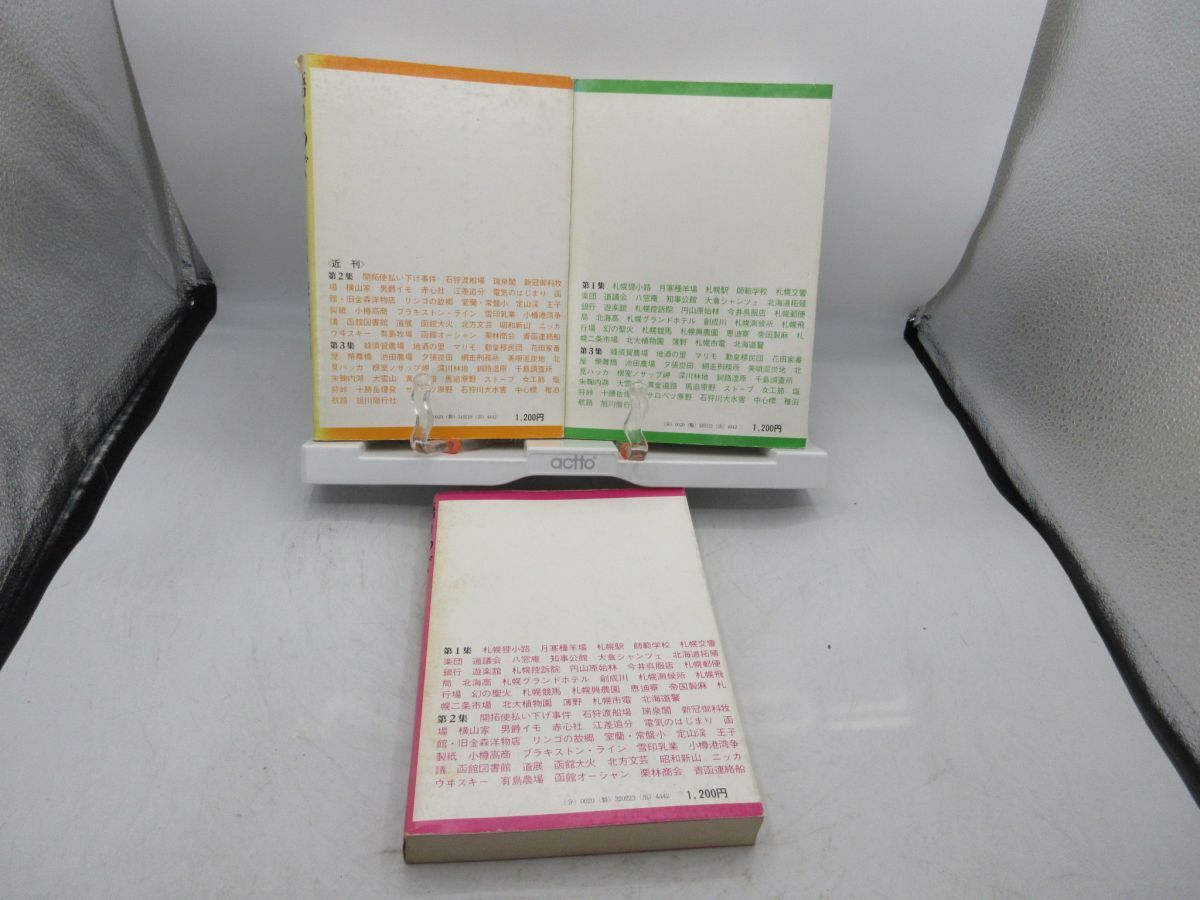 〈近刊〉
第2集 開拓使払い下げ事件 石狩渡船場 瑞泉閣 新冠御料牧
場 横山家 男爵イモ 赤心社 江差追分 電気のはじまり 函
館・旧金森洋物店 リンゴの故郷 室蘭・常盤小 定山渓 王子
製紙 小樽高商 ブラキストン・ライン 雪印乳業 小樽港湾争
議 函館図書館 道展 函館大火 北方文芸 昭和新山 ニッカ
ウヰスキー 有島牧場 函館オーシャン 栗林商会 青函連絡船
第3集 蜂須賀農場 地酒の里 マリモ 動皇移民団 花田家番
屋 幣舞橋 池田農場 夕張炭田 網走刑務所 美唄泥炭地 北
見ハッカ 根室ノサップ岬 深川林地 釧路湿原 千島調査所
朱鞠内湖 大雪山 黄金道路 馬追原野 ストーブ 女工節 塩
狩峠 十勝岳爆発 サロベツ原野 石狩川大水害 中心標 稚泊
航路 旭川偕行社
1,200円
第1集 札幌狸小路 月寒種羊場 札幌駅 師範学校 札幌交響
楽団 道議会 八窓庵 知事公館 大倉シャンツェ 北海道拓殖
銀行 遊楽舘 札幌控訴院 円山原始林 今井呉服店 札幌郵便
局 北海高 札幌グランドホテル 創成川 札幌測候所 札幌飛
行場 幻の聖火 札幌競馬 札幌興農園 恵迪寮 帝国製麻 札
幌二条市場 北大植物園 薄野 札幌市電 北海道警
第3集 蜂須賀農場 地酒の里 マリモ 動皇移民団 花田家番
屋 幣舞橋 池田農場 夕張炭田 網走刑務所 美唄泥炭地 北
見ハッカ 根室ノサップ岬 深川林地 釧路湿原 千島調査所
朱鞠内湖 大雪山 黄金道路 馬追原野 ストーブ 女工節 塩
狩峠 十勝岳爆発 サロベツ原野 石狩川大水害 中心標 稚泊
航路 旭川偕行社
1,200円
actto
第1集 札幌狸小路 月寒種羊場 札幌駅 師範学校 札幌交響
楽団 道議会 八窓庵 知事公館 大倉シャンツェ 北海道拓殖
銀行 遊楽舘 札幌控訴院 円山原始林 今井呉服店 札幌郵便
局 北海高 札幌グランドホテル 創成川 札幌測候所 札幌飛
行場 幻の聖火 札幌競馬 札幌興農園 恵迪寮 帝国製麻 札
幌二条市場 北大植物園 薄野 札幌市電 北海道警
第2集 開拓使払い下げ事件 石狩渡船場 瑞泉閣 新冠御料牧
場 横山家 男爵イモ 赤心社 江差追分 電気のはじまり 函
館・旧金森洋物店 リンゴの故郷 室蘭・常盤小 定山渓 王子
製紙 小樽高商 ブラキストン・ライン 雪印乳業 小樽港湾争
議 函館図書館 道展 函館大火 北方文芸 昭和新山 ニッカ
ウヰスキー 有島農場 函館オーシャン 栗林商会 青函連絡船
(分) 0020 (製) 320223 (出) 4442 1,200円